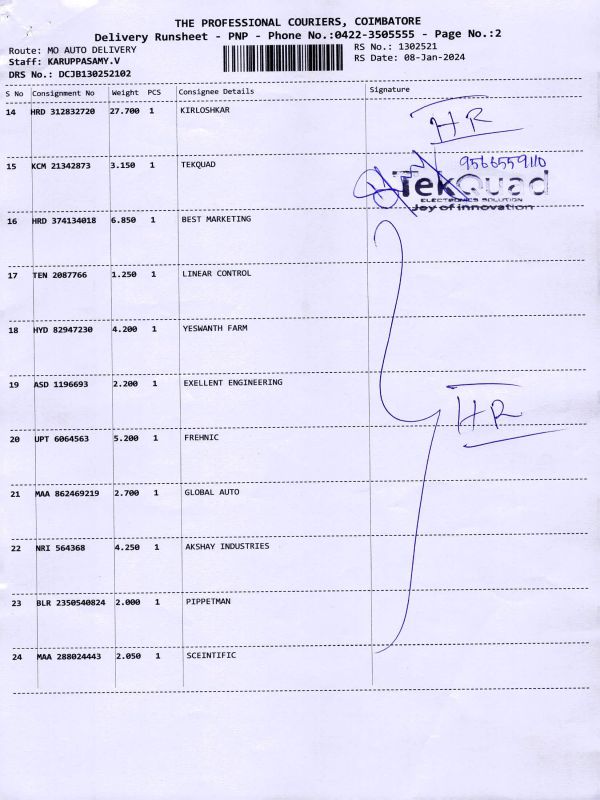 THE PROFESSIONAL COURIERS, COIMBATORE
Delivery Runsheet - PNP - Phone No.:0422-3505555 - Page No.:2
Route: MO AUTO DELIVERY
Staff: KARUPPASAMY.V
DRS No.: DCJB130252102
RS No.: 1302521
RS Date: 08-Jan-2024
S No Consignment No Weight PCS Consignee Details Signature
14 HRD 312832720 27.700 1 KIRLOSHKAR HR
15 KCM 21342873 3.150 1 TEKQUAD 9566559110
TekQuad
ELECTRONICS SOLUTION
Joy of innovation
16 HRD 374134018 6.850 1 BEST MARKETING
17 TEN 2087766 1.250 1 LINEAR CONTROL
18 HYD 82947230 4.200 1 YESWANTH FARM
19 ASD 1196693 2.200 1 EXELLENT ENGINEERING
HR
20 UPT 6064563 5.200 1 FREHNIC
21 MAA 862469219 2.700 1 GLOBAL AUTO
22 NRI 564368 4.250 1 AKSHAY INDUSTRIES
23 BLR 2350540824 2.000 1 PIPPETMAN
24 MAA 288024443 2.050 1 SCEINTIFIC